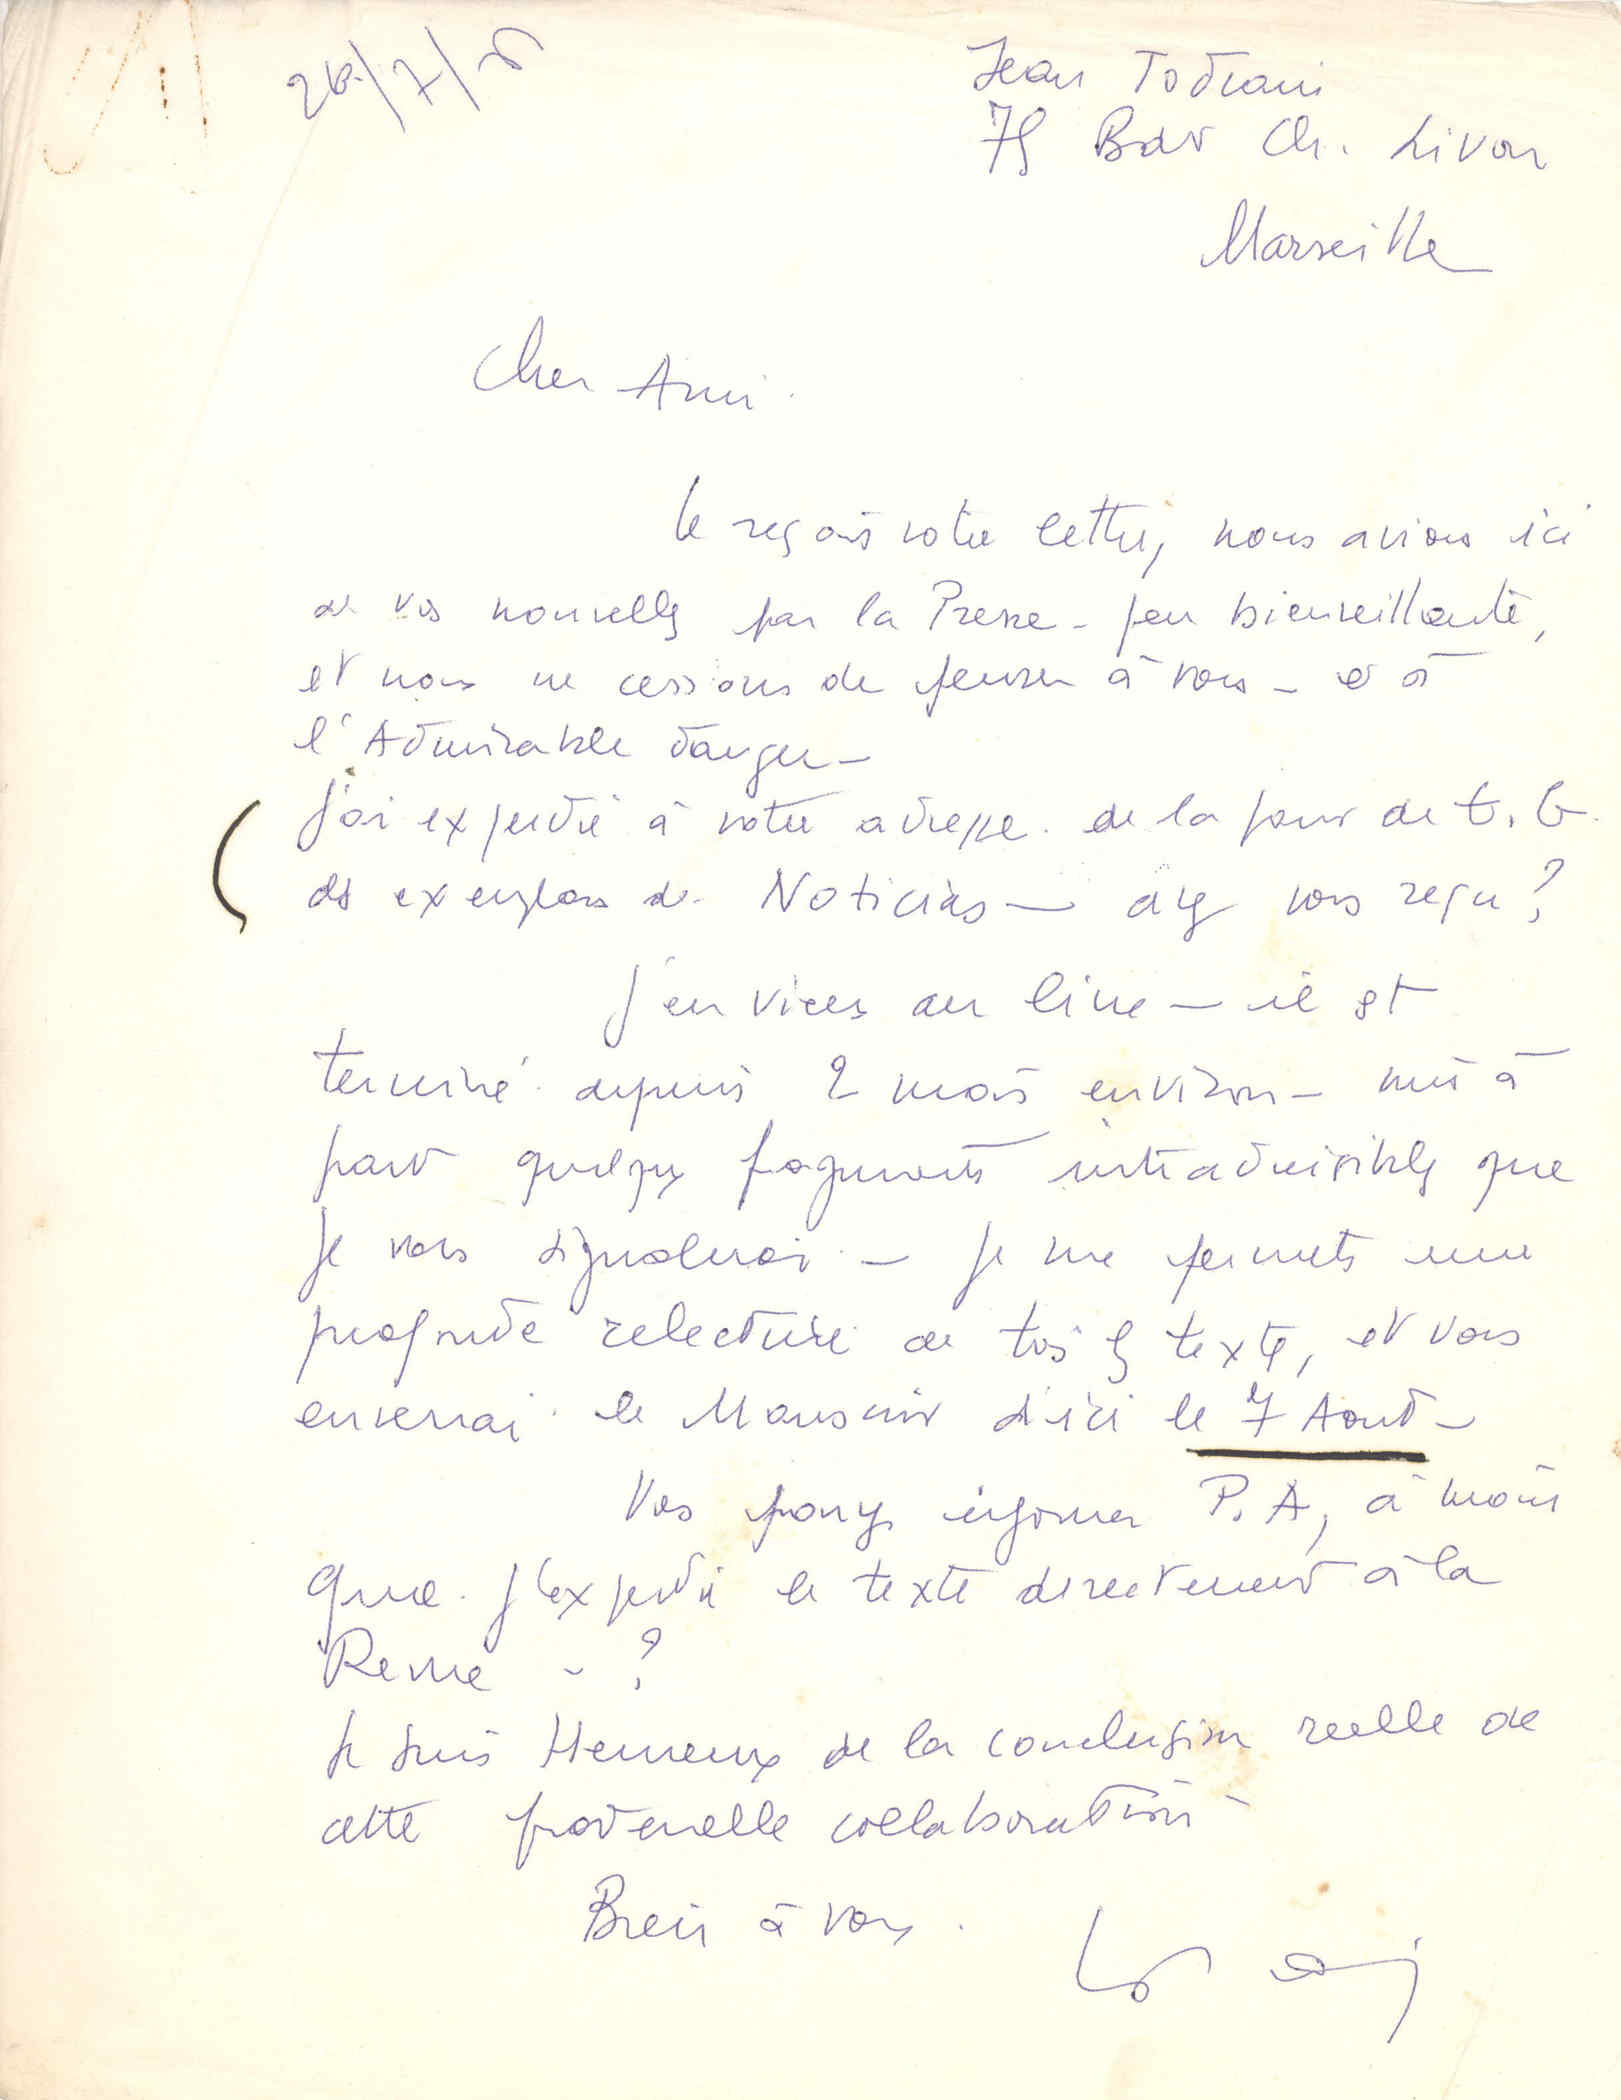 Jean Todrani
75 Bdv Ch. Livon
Marseille
Cher Ami.
Je reçois votre lettre, nous avions ici
de vos nouvelles par la Presse - peu bienveillante,
et nous ne cessons de penser à vous - et à
l'Admirable danger -
J'ai expédié à votre adresse de la part de G. G.
des exemplaires de Noticias - avez vous reçu ?
J'en viens au livre - il est
terminé depuis 2 mois environ - mis à
part quelques fragments intraduisibles que
je vous signalerai - Je me permets une
profonde relecture de tous les textes, et vous
enverrai le Manuscrit d'ici le 7 Août -
Vous pouvez informer P. A, à moins
que j'expédie le texte directement à la
Revue - ?
Je suis Heureux de la conclusion réelle de
cette fraternelle collaboration -
Bien à vous.